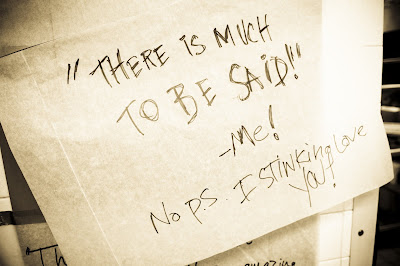 "THERE IS MUCH
TO BE SAID!"
-Me!
No P.S. I STINKING LOVE
YOU!
"Th
amazing